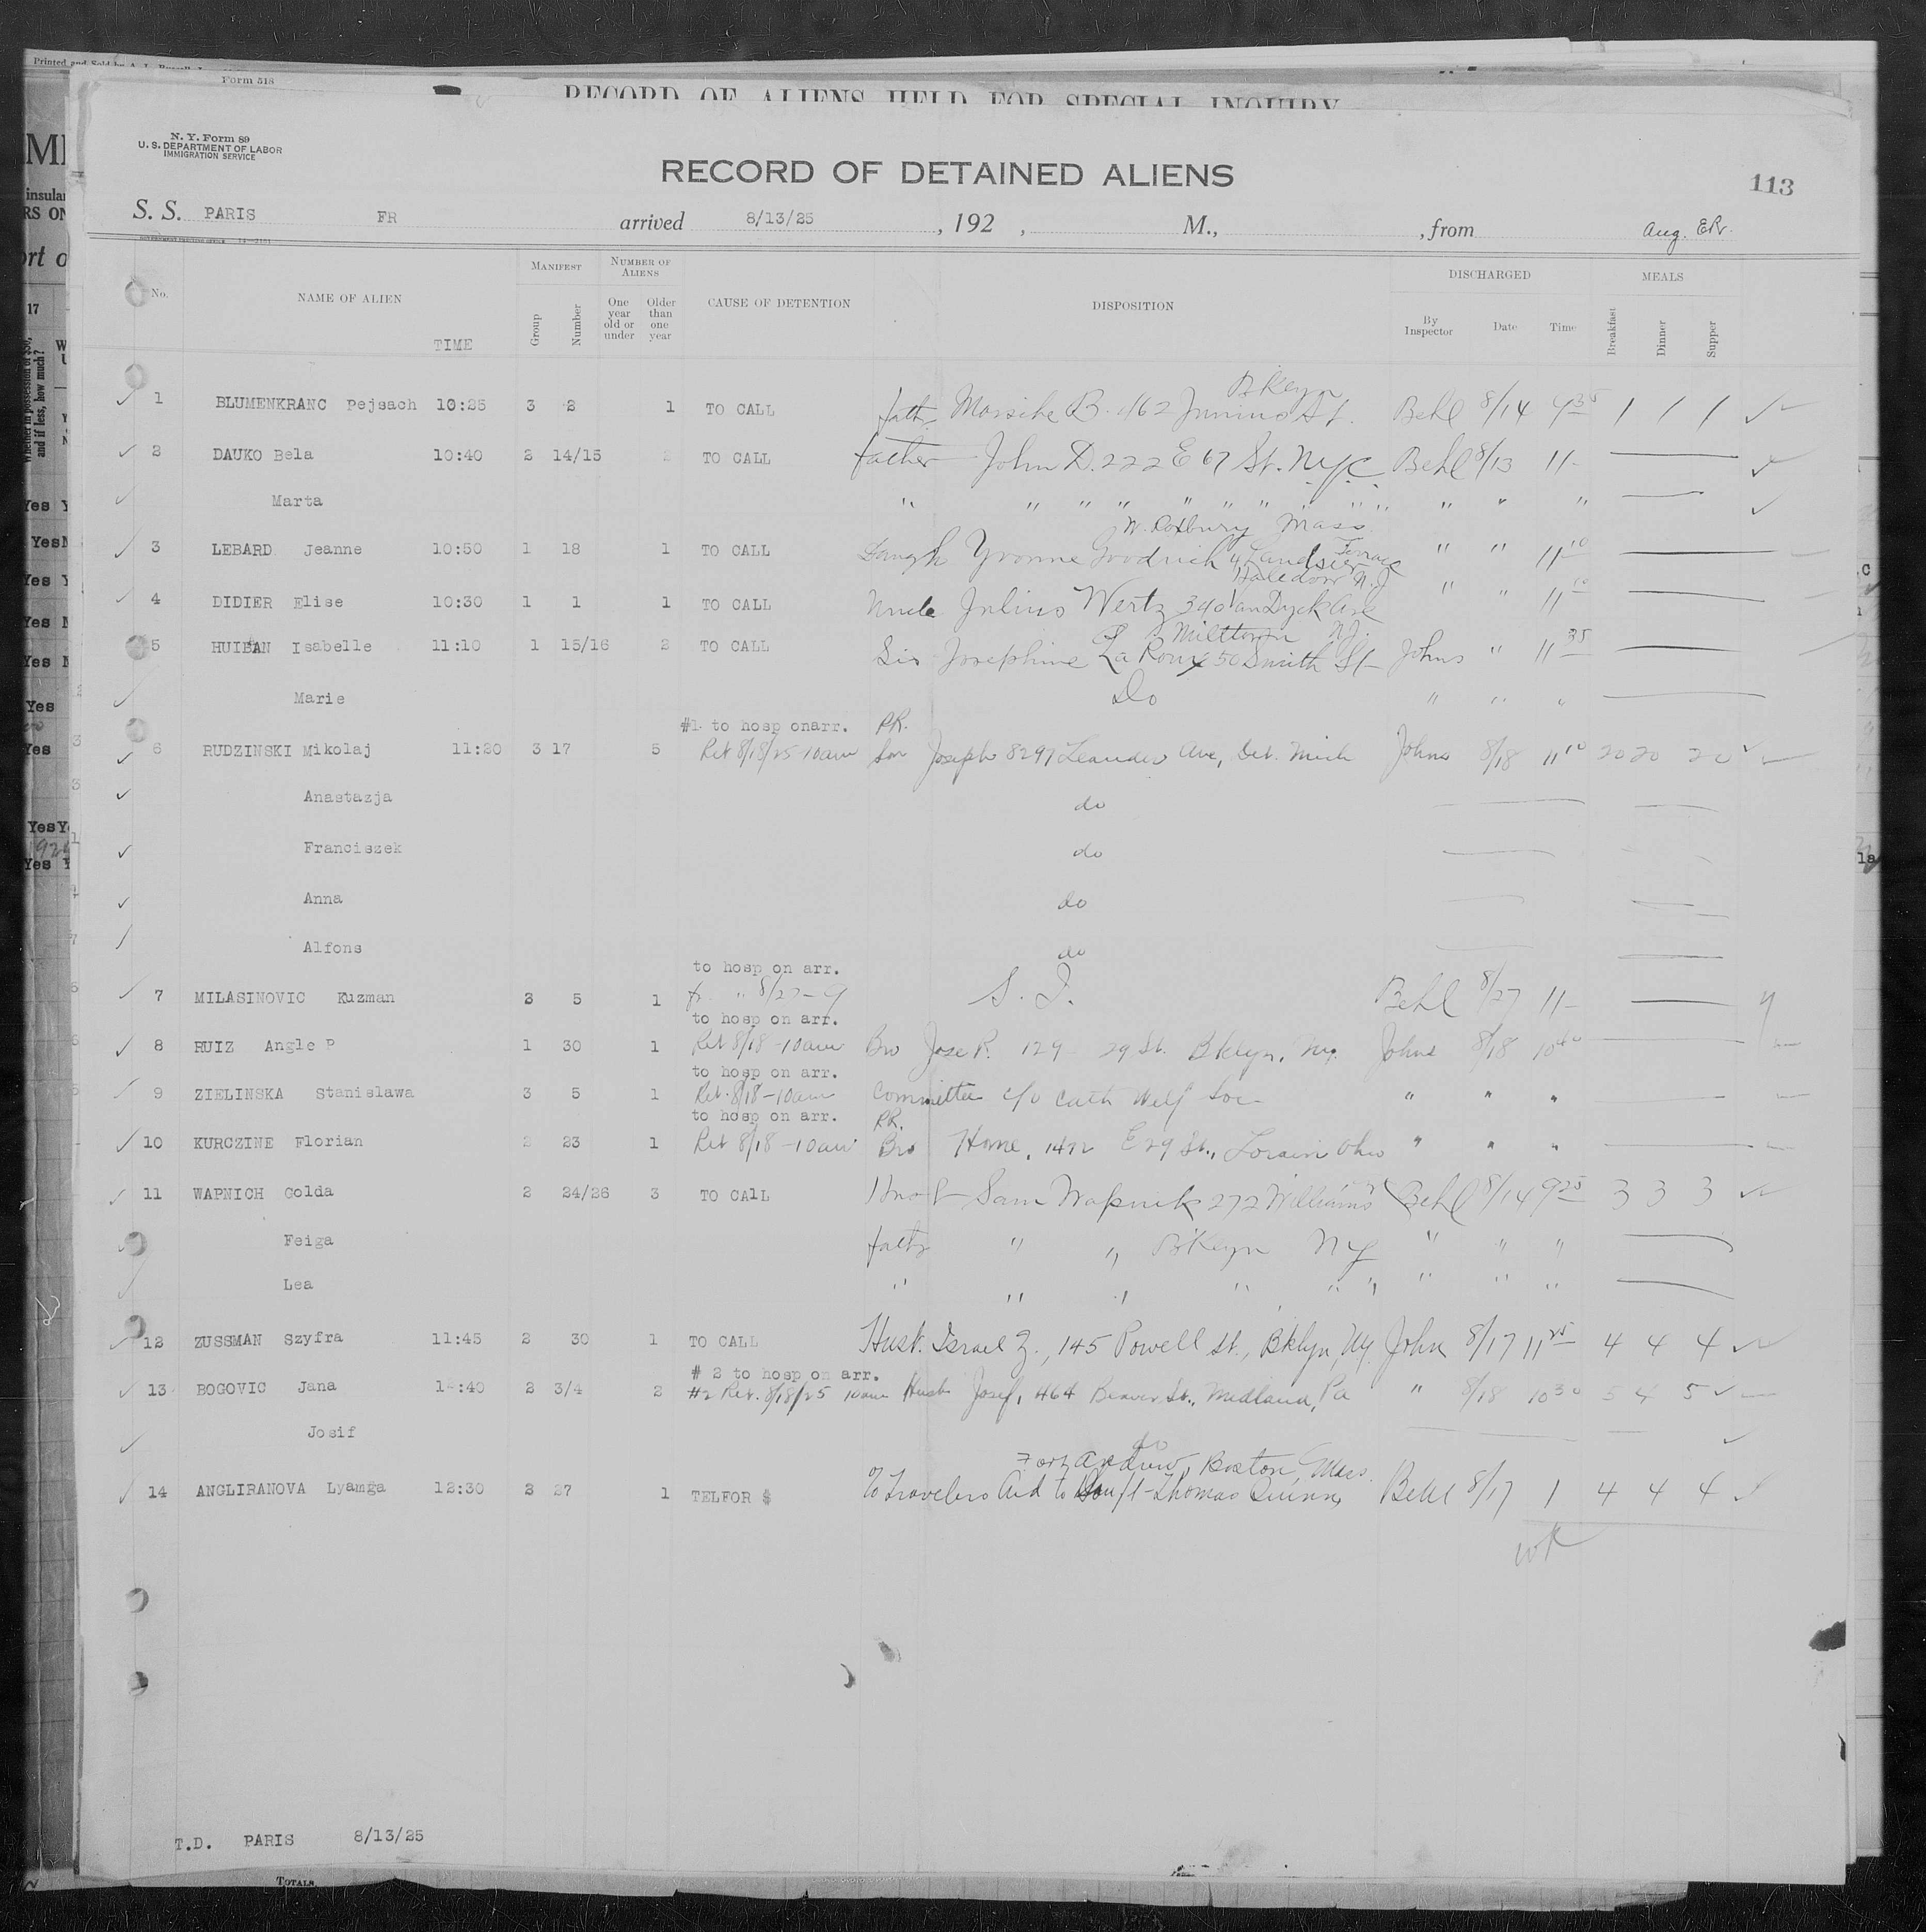 Form 518
RECORD OF ALIENS HELD FOR SPECIAL INQUIRY
N. Y. Form 89
U. S. DEPARTMENT OF LABOR
IMMIGRATION SERVICE
RECORD OF DETAINED ALIENS
113
S. S. PARIS FR arrived 8/13/25, 192 , M., , from Aug. ER.
No. NAME OF ALIEN TIME MANIFEST Group Number NUMBER OF ALIENS One year old or under Older than one year CAUSE OF DETENTION DISPOSITION DISCHARGED By Inspector Date Time MEALS Breakfast Dinner Supper
Bklyn
1 BLUMENKRANC Pejsach 10:25 3 2 1 TO CALL fath. B. 462 Junius St. Behl 8/14 9 35 1 1 1
2 DAUKO Bela 10:40 2 14/15 2 TO CALL father John D. 222 E 67 St. NYC Behl 8/13 11-
Marta " " " " " " " " " " " " "
W. Roxbury Mass
3 LEBARD Jeanne 10:50 1 18 1 TO CALL Daugh Yvonne Goodrich 4 Landseer Terrace " " 11 10
Haledon N.J
4 DIDIER Elise 10:30 1 1 1 TO CALL Uncle Julius Wertz 340 Van Dyck Ave " " 11 10
Milltown N.J.
5 HUIBAN Isabelle 11:10 1 15/16 2 TO CALL Sis Josephine La Roux 50 Smith St Johns " 11 35
Marie Do " " "
#1 to hosp onarr. RR.
6 RUDZINSKI Mikolaj 11:20 3 17 5 Ret 8/18/25-10am Son Joseph 8297 Leander Ave, Det. Mich Johns 8/18 11 10 20 20 20
Anastazja do
Franciszek do
Anna do
Alfons do
to hosp on arr.
7 MILASINOVIC Kuzman 3 5 1 fr. " 8/27-9 S. I. Behl 8/27 11-
to hosp on arr.
8 RUIZ Angle P 1 30 1 Ret 8/18-10am Bro Jose R. 129 29 St. Bklyn, Ny. Johns 8/18 10 40
to hosp on arr.
9 ZIELINSKA Stanislawa 3 5 1 Ret. 8/18-10am Committee c/o Cath Welf Soc " " "
to hosp on arr. RR.
10 KURCZINE Florian 2 23 1 Ret 8/18-10am Bro Home, 1472 E 29 St., Lorain Ohio " " "
11 WAPNICH Golda 2 24/26 3 TO CAll Husb Sam Wapnik 272 Williams Behl 8/14 9 25 3 3 3
Feiga fath " " Bklyn NY " " "
Lea " " " " " " " " "
12 ZUSSMAN Szyfra 11:45 2 30 1 TO CALL Husb. Israel Z., 145 Powell St., Bklyn, Ny. Johns 8/17 11 25 4 4 4
# 2 to hosp on arr.
13 BOGOVIC Jana 12:40 2 3/4 2 #2 Ret. 8/18/25 10am Husb Josef, 464 Beaver St., Midland, Pa " 8/18 10 30 5 4 5
Josif do
Fort Andrew, Boston, Mass.
14 ANGLIRANOVA Lyamga 12:30 2 27 1 TELFOR $ To Travelers Aid to Thomas Quinn, Behl 8/17 1 4 4 4
T.D. PARIS 8/13/25
TOTALS